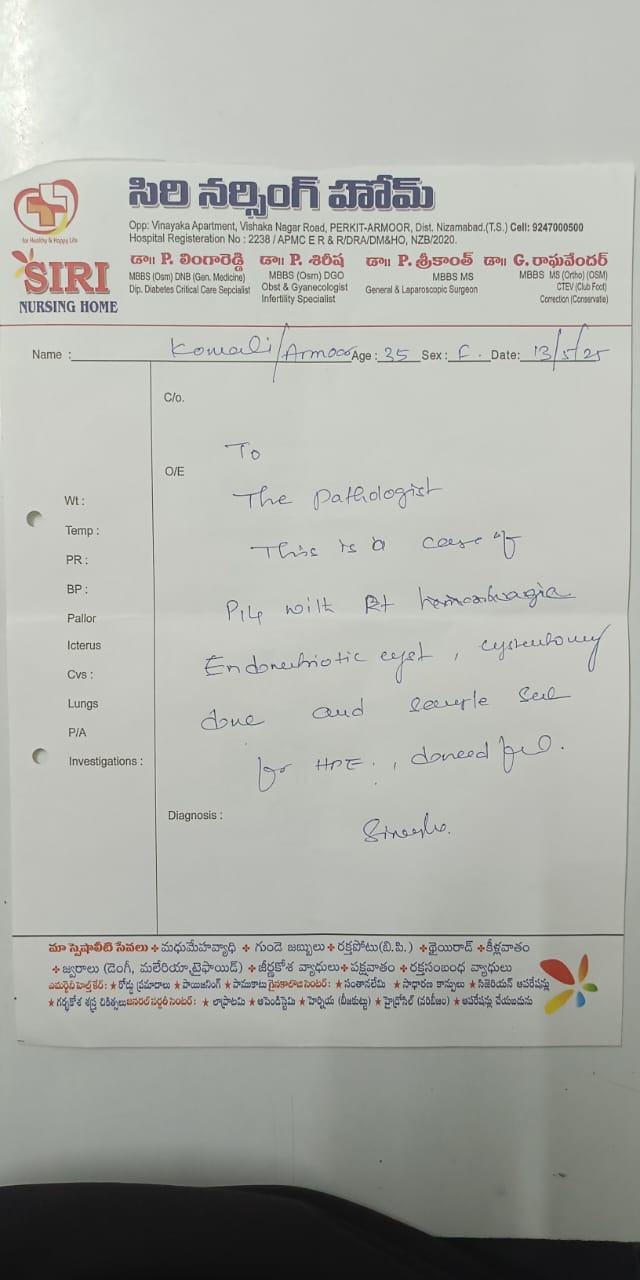 సిరి నర్సింగ్ హోమ్
for Healthy & Happy Life
Opp: Vinayaka Apartment, Vishaka Nagar Road, PERKIT-ARMOOR, Dist. Nizamabad.(T.S.) Cell: 9247000500
Hospital Registeration No : 2238 / APMC E R & R/DRA/DM&HO, NZB/2020.
SIRI
NURSING HOME
డా॥ P. లింగారెడ్డి
MBBS (Osm) DNB (Gen. Medicine)
Dip. Diabetes Critical Care Sepcialist
డా॥ P. శిరీష
MBBS (Osm) DGO
Obst & Gyanecologist
Infertility Specialist
డా॥ P. శ్రీకాంత్
MBBS MS
General & Laparoscopic Surgeon
డా॥ G. రాఘవేందర్
MBBS MS (Ortho) (OSM)
CTEV (Club Foot)
Correction (Conservatie)
Name : Komali/Armoor Age : 35 Sex : F. Date: 13/5/25
C/o.
O/E
Wt :
Temp :
PR :
BP :
Pallor
Icterus
Cvs :
Lungs
P/A
Investigations :
To
The Pathologist
This is a case of
with Rt
cyst,
done and sample
for HPE.,
Diagnosis :
మా స్పెషాలిటీ సేవలు + మధుమేహవ్యాధి + గుండె జబ్బులు + రక్తపోటు(బి.పి.) + థైయిరాడ్ + కీళ్లవాతం
+ జ్వరాలు (డెంగీ, మలేరియా,టైఫాయిడ్) + జీర్ణకోశ వ్యాధులు + పక్షవాతం + రక్తసంబంధ వ్యాధులు
ఎమర్జెన్సీ హెల్త్‌కేర్: ★ రోడ్డు ప్రమాదాలు ★ పాయిజనింగ్ ★ పాముకాటు ★ సంతానలేమి ★ సాధారణ కాన్పులు ★ సిజెరియన్ ఆపరేషన్లు
★ గర్భకోశ శస్త్ర చికిత్సలు జనరల్ సర్జరీ సెంటర్: ★ లాప్రాటమి ★ అపెండిసెక్టెమి ★ హెర్నియ ★ హైడ్రోసిల్ ★ ఆపరేషన్లు చేయబడును